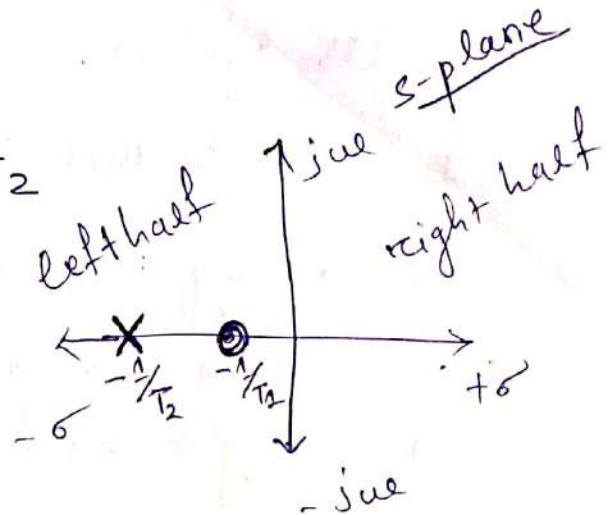 s-plane
2
jω
left half
right half
-1/T2
-1/T1
-σ
+σ
-jω